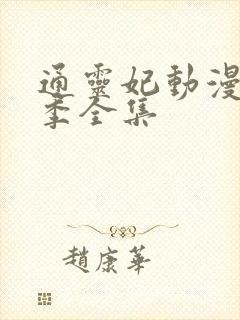 通靈妃動漫
季全集
趙康華